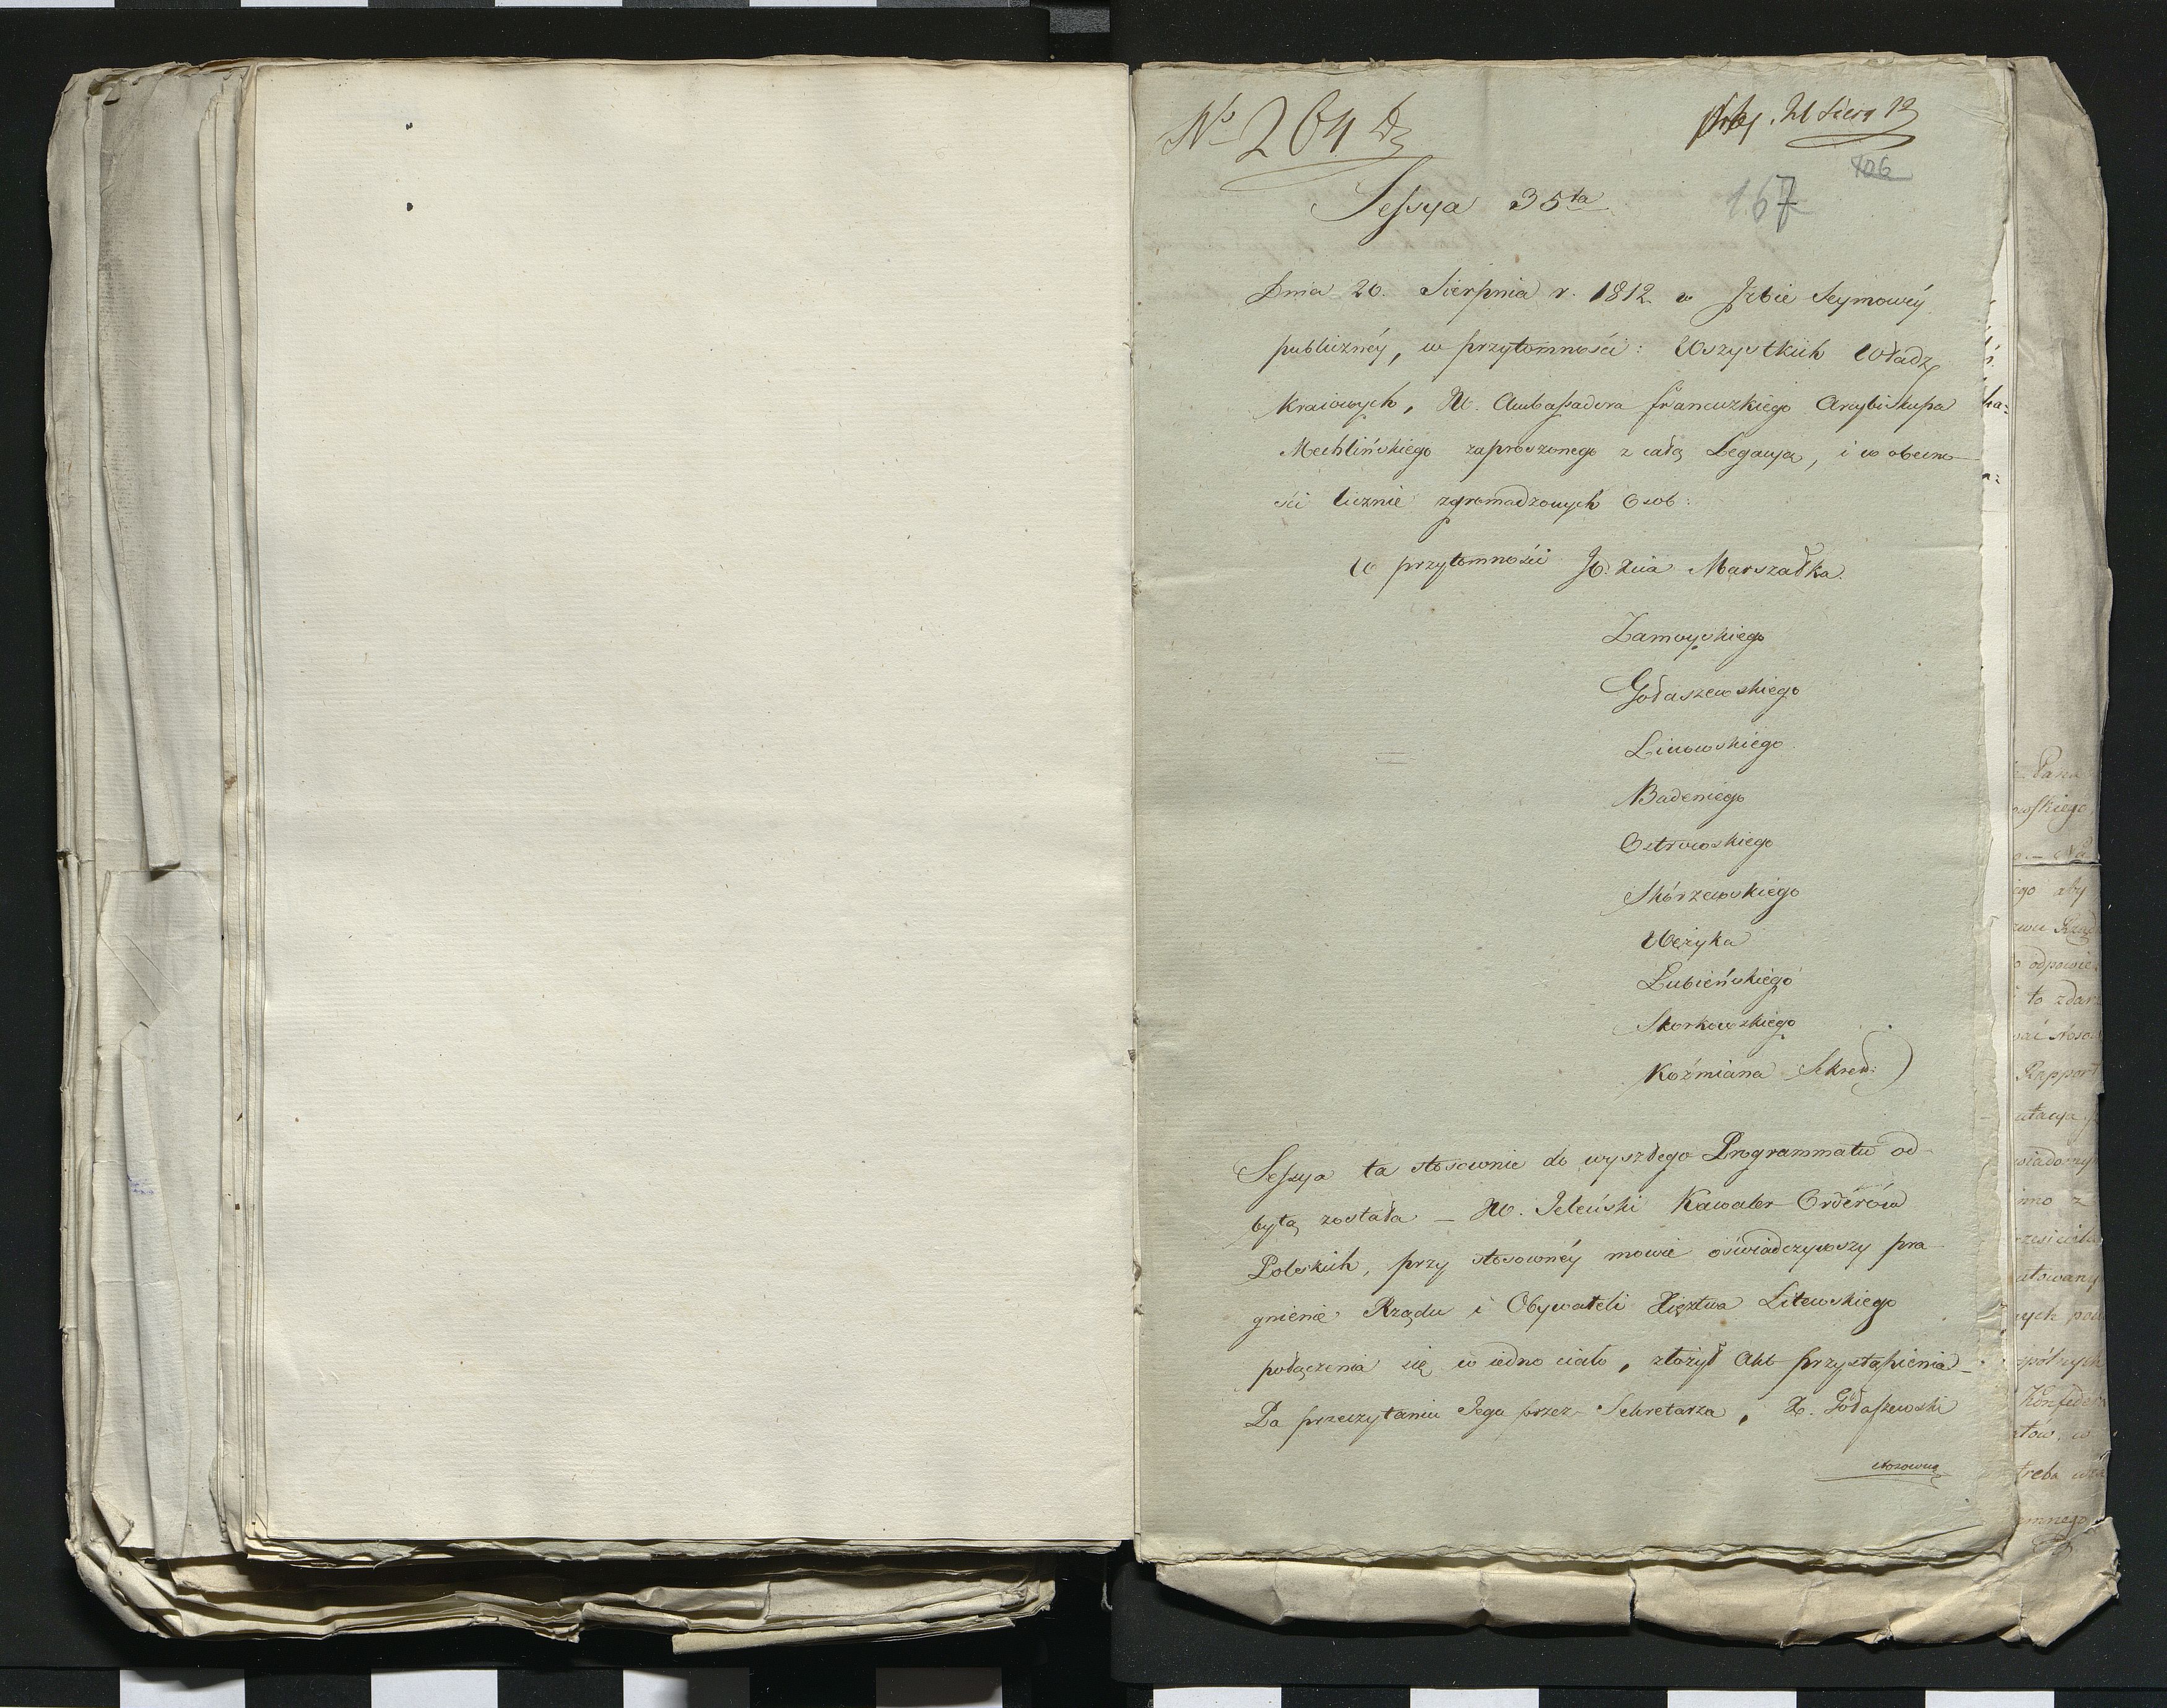 No 264 Dz
21 Sierp 12
106
167
Sessya 35ta
Dnia 20. Sierpnia r. 1812 w Izbie Seymowéy
publicznéy, w przytomności: Wszystkich Władz
Kraiowych, JW. Ambassadora francuzkiego Arcybiskupa
Mechlińskiego zaproszonego z całą Legacyą, i w obecno-
ści licznie zgromadzonych Osob:
W przytomności JO. Xcia Marszałka.
Zamoyskiego
Gołaszewskiego
Linowskiego
Badeniego
Ostrowskiego
Skórzewskiego
Wężyka
Łubieńskiego
Skorkowskiego
Koźmiana Sekret:)
Sessya ta stosownie do wyszłego Programmatu od-
bytą została – JW. Jeleński Kawaler Orderów
Polskich, przy stosownéy mowie oświadczywszy pra-
gnienie Rządu i Obywateli Xięztwa Litewskiego
połączenia się w iedno ciało, złożył Akt przystąpienia –
Po przeczytaniu Jego przez Sekretarza, X. Gołaszewski
stosowną
Pana
owskiego
ego aby
odpowie
to zdar
Rapport
utacya
wiadomy
inno z
utowany
ych
spólnych
Konfeder
atow, w
treba
emnego